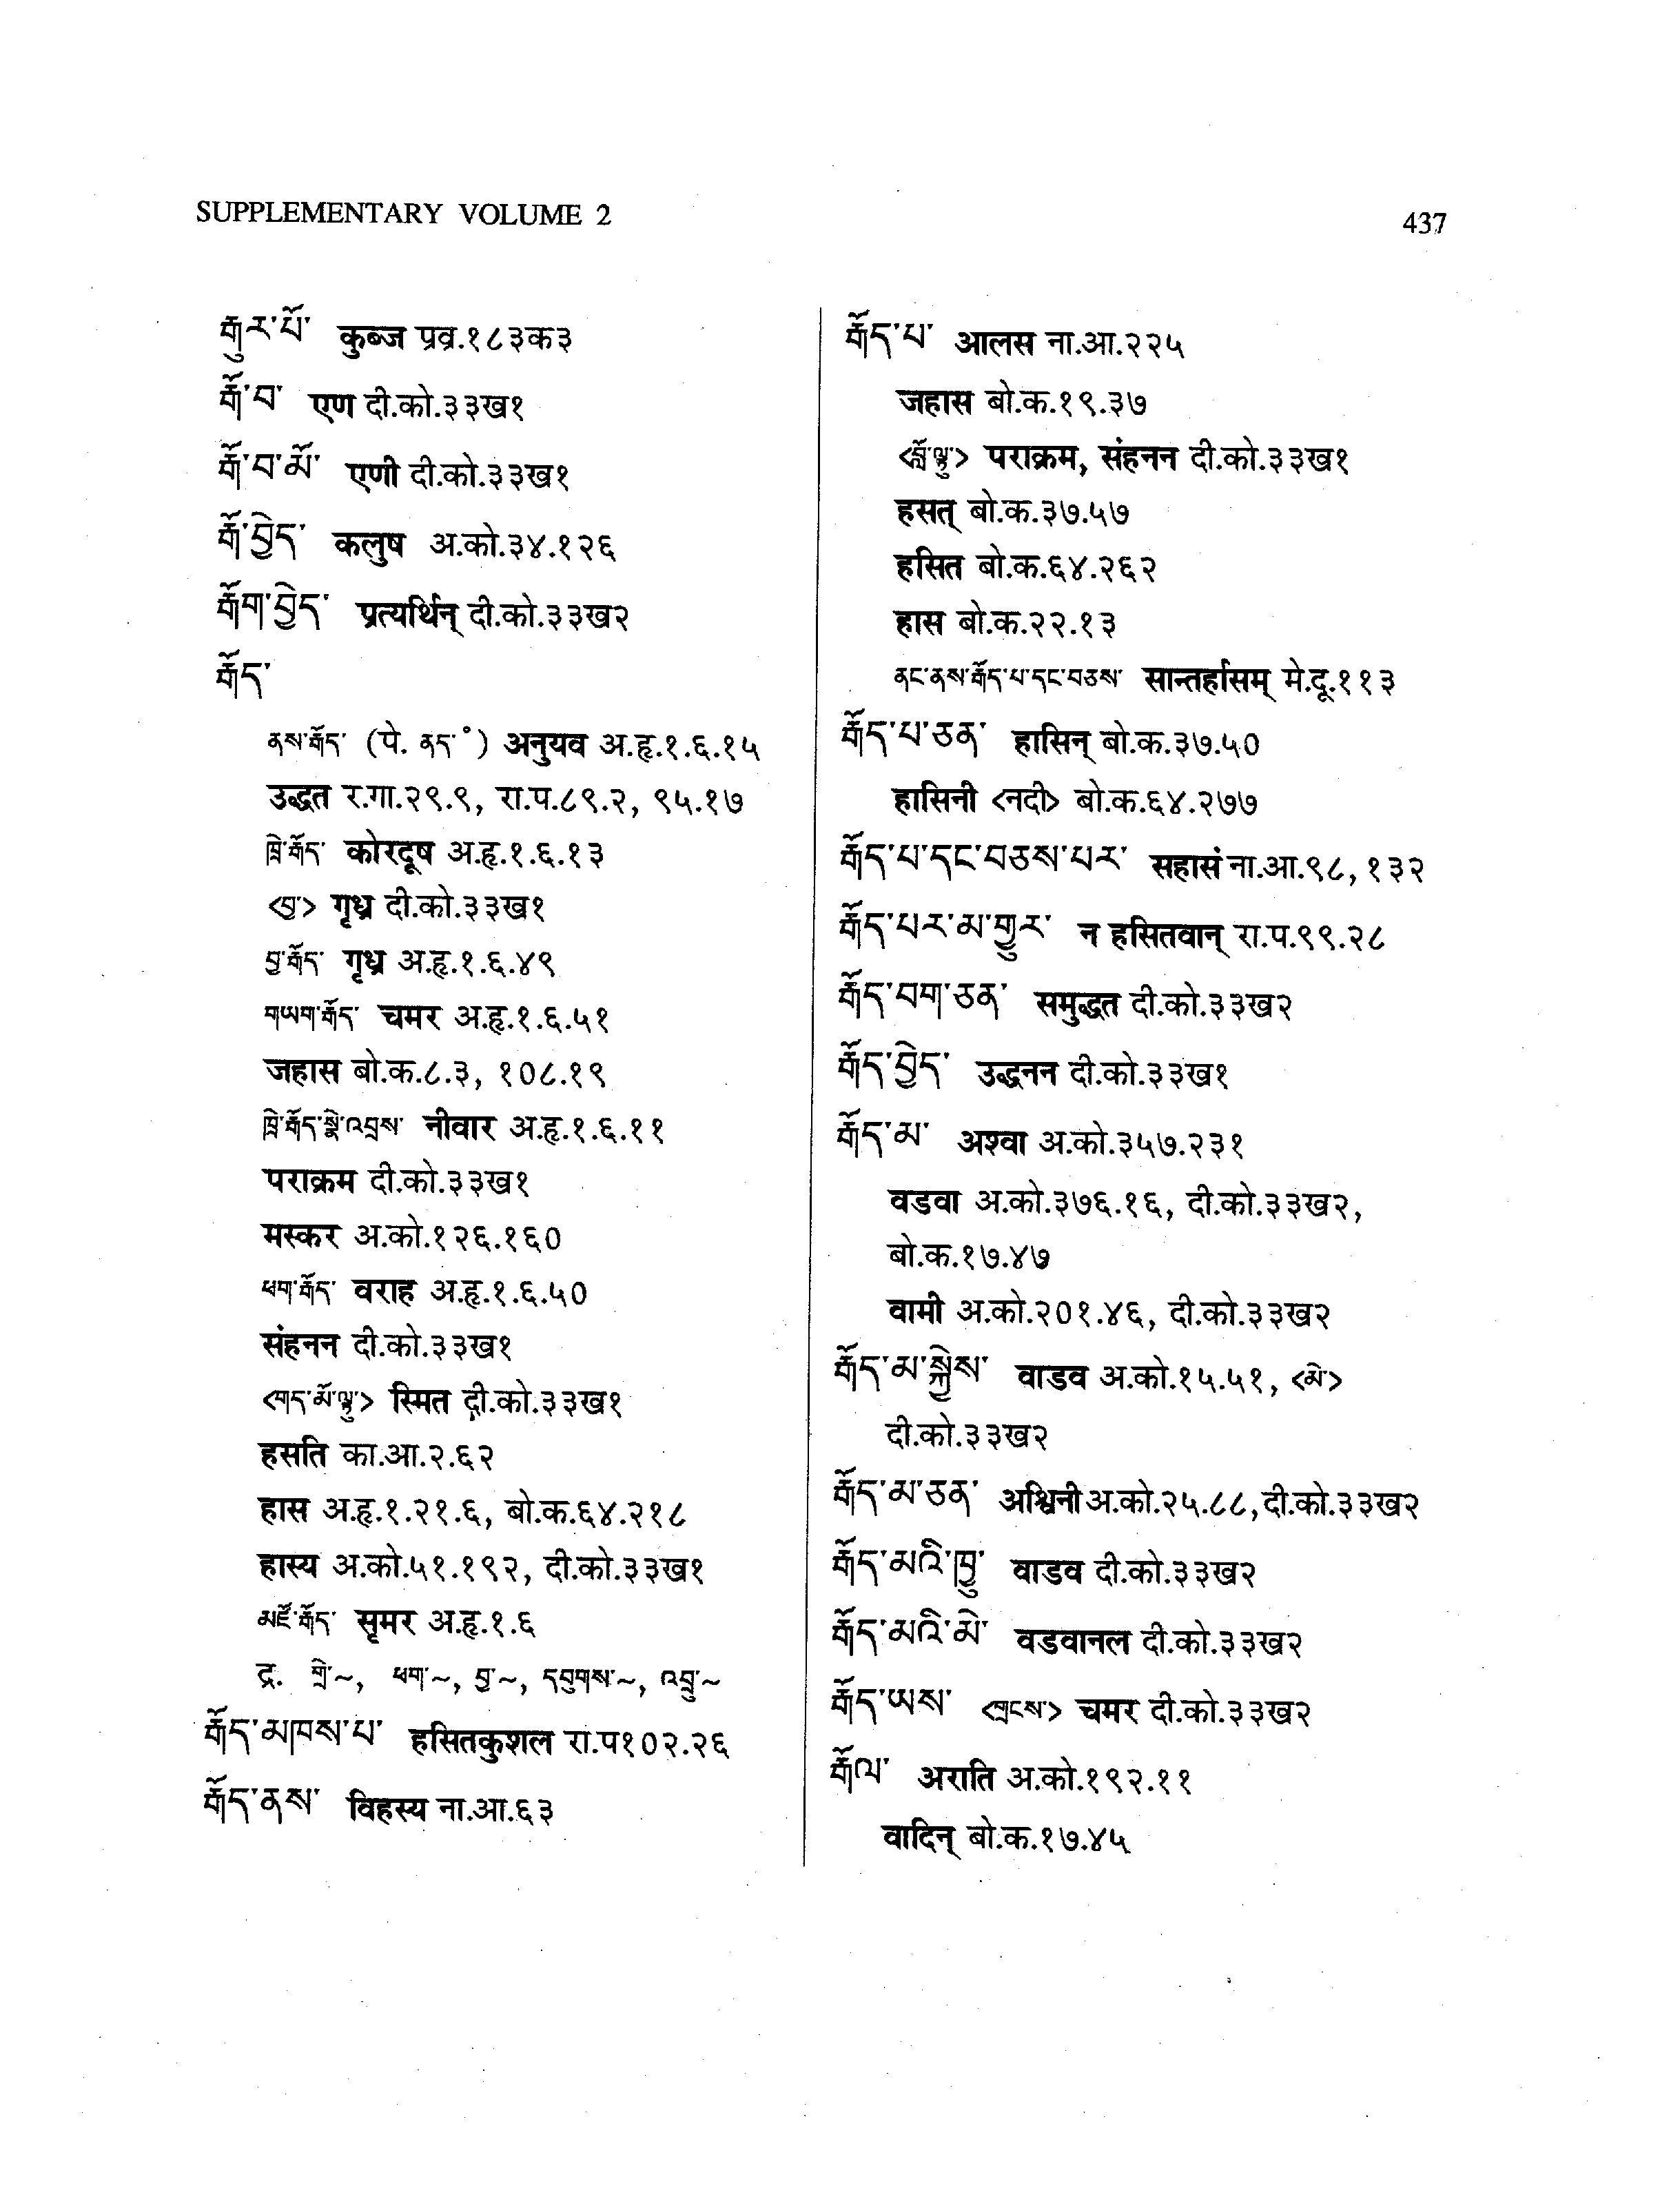 SUPPLEMENTARY VOLUME 2
437
རྒུར་པོ་ कुब्ज प्रव्र.१८३क३
རྒོ་བ་ एण दी.को.३३ख१
རྒོ་བ་མོ་ एणी दी.को.३३ख१
རྒོ་བྱེད་ कलुष अ.को.३४.१२६
རྒོག་བྱེད་ प्रत्यर्थिन् दी.को.३३ख२
རྒོད་
ནས་རྒོད་ (पे. ནད་°) अनुयव अ.हृ.१.६.१५
उद्धत र.गा.२९.९, रा.प.८९.२, ९५.१७
ཁྲེ་རྒོད་ कोरदूष अ.हृ.१.६.१३
<བྱ་> गृध्र दी.को.३३ख१
བྱ་རྒོད་ गृध्र अ.हृ.१.६.४९
གཡག་རྒོད་ चमर अ.हृ.१.६.५१
जहास बो.क.८.३, १०८.१९
ཁྲེ་རྒོད་སྣེ་འབྲས་ नीवार अ.हृ.१.६.११
पराक्रम दी.को.३३ख१
मस्कर अ.को.१२६.१६०
ཕག་རྒོད་ वराह अ.हृ.१.६.५०
संहनन दी.को.३३ख१
<གད་མོ་ལྟུ་> स्मित दी.को.३३ख१
हसति का.आ.२.६२
हास अ.हृ.१.२१.६, बो.क.६४.२१८
हास्य अ.को.५१.१९२, दी.को.३३ख१
མཛོ་རྒོད་ सृमर अ.हृ.१.६
द्र. གྲེ་~, ཕག་~, བྱ་~, དབུགས་~, འབྲུ་~
རྒོད་མཁས་པ་ हसितकुशल रा.प१०२.२६
རྒོད་ནས་ विहस्य ना.आ.६३
རྒོད་པ་ आलस ना.आ.२२५
जहास बो.क.१९.३७
पराक्रम, संहनन दी.को.३३ख१
हसत् बो.क.३७.५७
हसित बो.क.६४.२६२
हास बो.क.२२.१३
ནང་ནས་རྒོད་པ་དང་བཅས་ सान्तर्हासम् मे.दू.११३
རྒོད་པ་ཅན་ हासिन् बो.क.३७.५०
हासिनी <नदी> बो.क.६४.२७७
རྒོད་པ་དང་བཅས་པར་ सहासं ना.आ.९८, १३२
རྒོད་པར་མ་གྱུར་ न हसितवान् रा.प.९९.२८
རྒོད་བག་ཅན་ समुद्धत दी.को.३३ख२
རྒོད་བྱེད་ उद्धनन दी.को.३३ख१
རྒོད་མ་ अश्वा अ.को.३५७.२३१
वडवा अ.को.३७६.१६, दी.को.३३ख२,
बो.क.१७.४७
वामी अ.को.२०१.४६, दी.को.३३ख२
རྒོད་མ་སྐྱེས་ वाडव अ.को.१५.५१, <མེ་>
दी.को.३३ख२
རྒོད་མ་ཅན་ अश्विनी अ.को.२५.८८, दी.को.३३ख२
རྒོད་མའི་ཁྱུ་ वाडव दी.को.३३ख२
རྒོད་མའི་མེ་ वडवानल दी.को.३३ख२
རྒོད་ཡས་ <གྲངས་> चमर दी.को.३३ख२
རྒོལ་ अराति अ.को.१९२.११
वादिन् बो.क.१७.४५